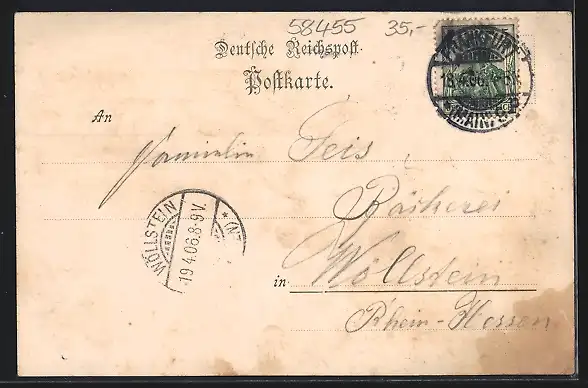 58455 35,-
Deutsche Reichspost
Postkarte.
FRANKFURT
18.4.06.
(MAIN)
An
Familie Feis
Bäckerei
WÖLLSTEIN
19.4.06.8-9V.
in Wöllstein
Rhein-Hessen